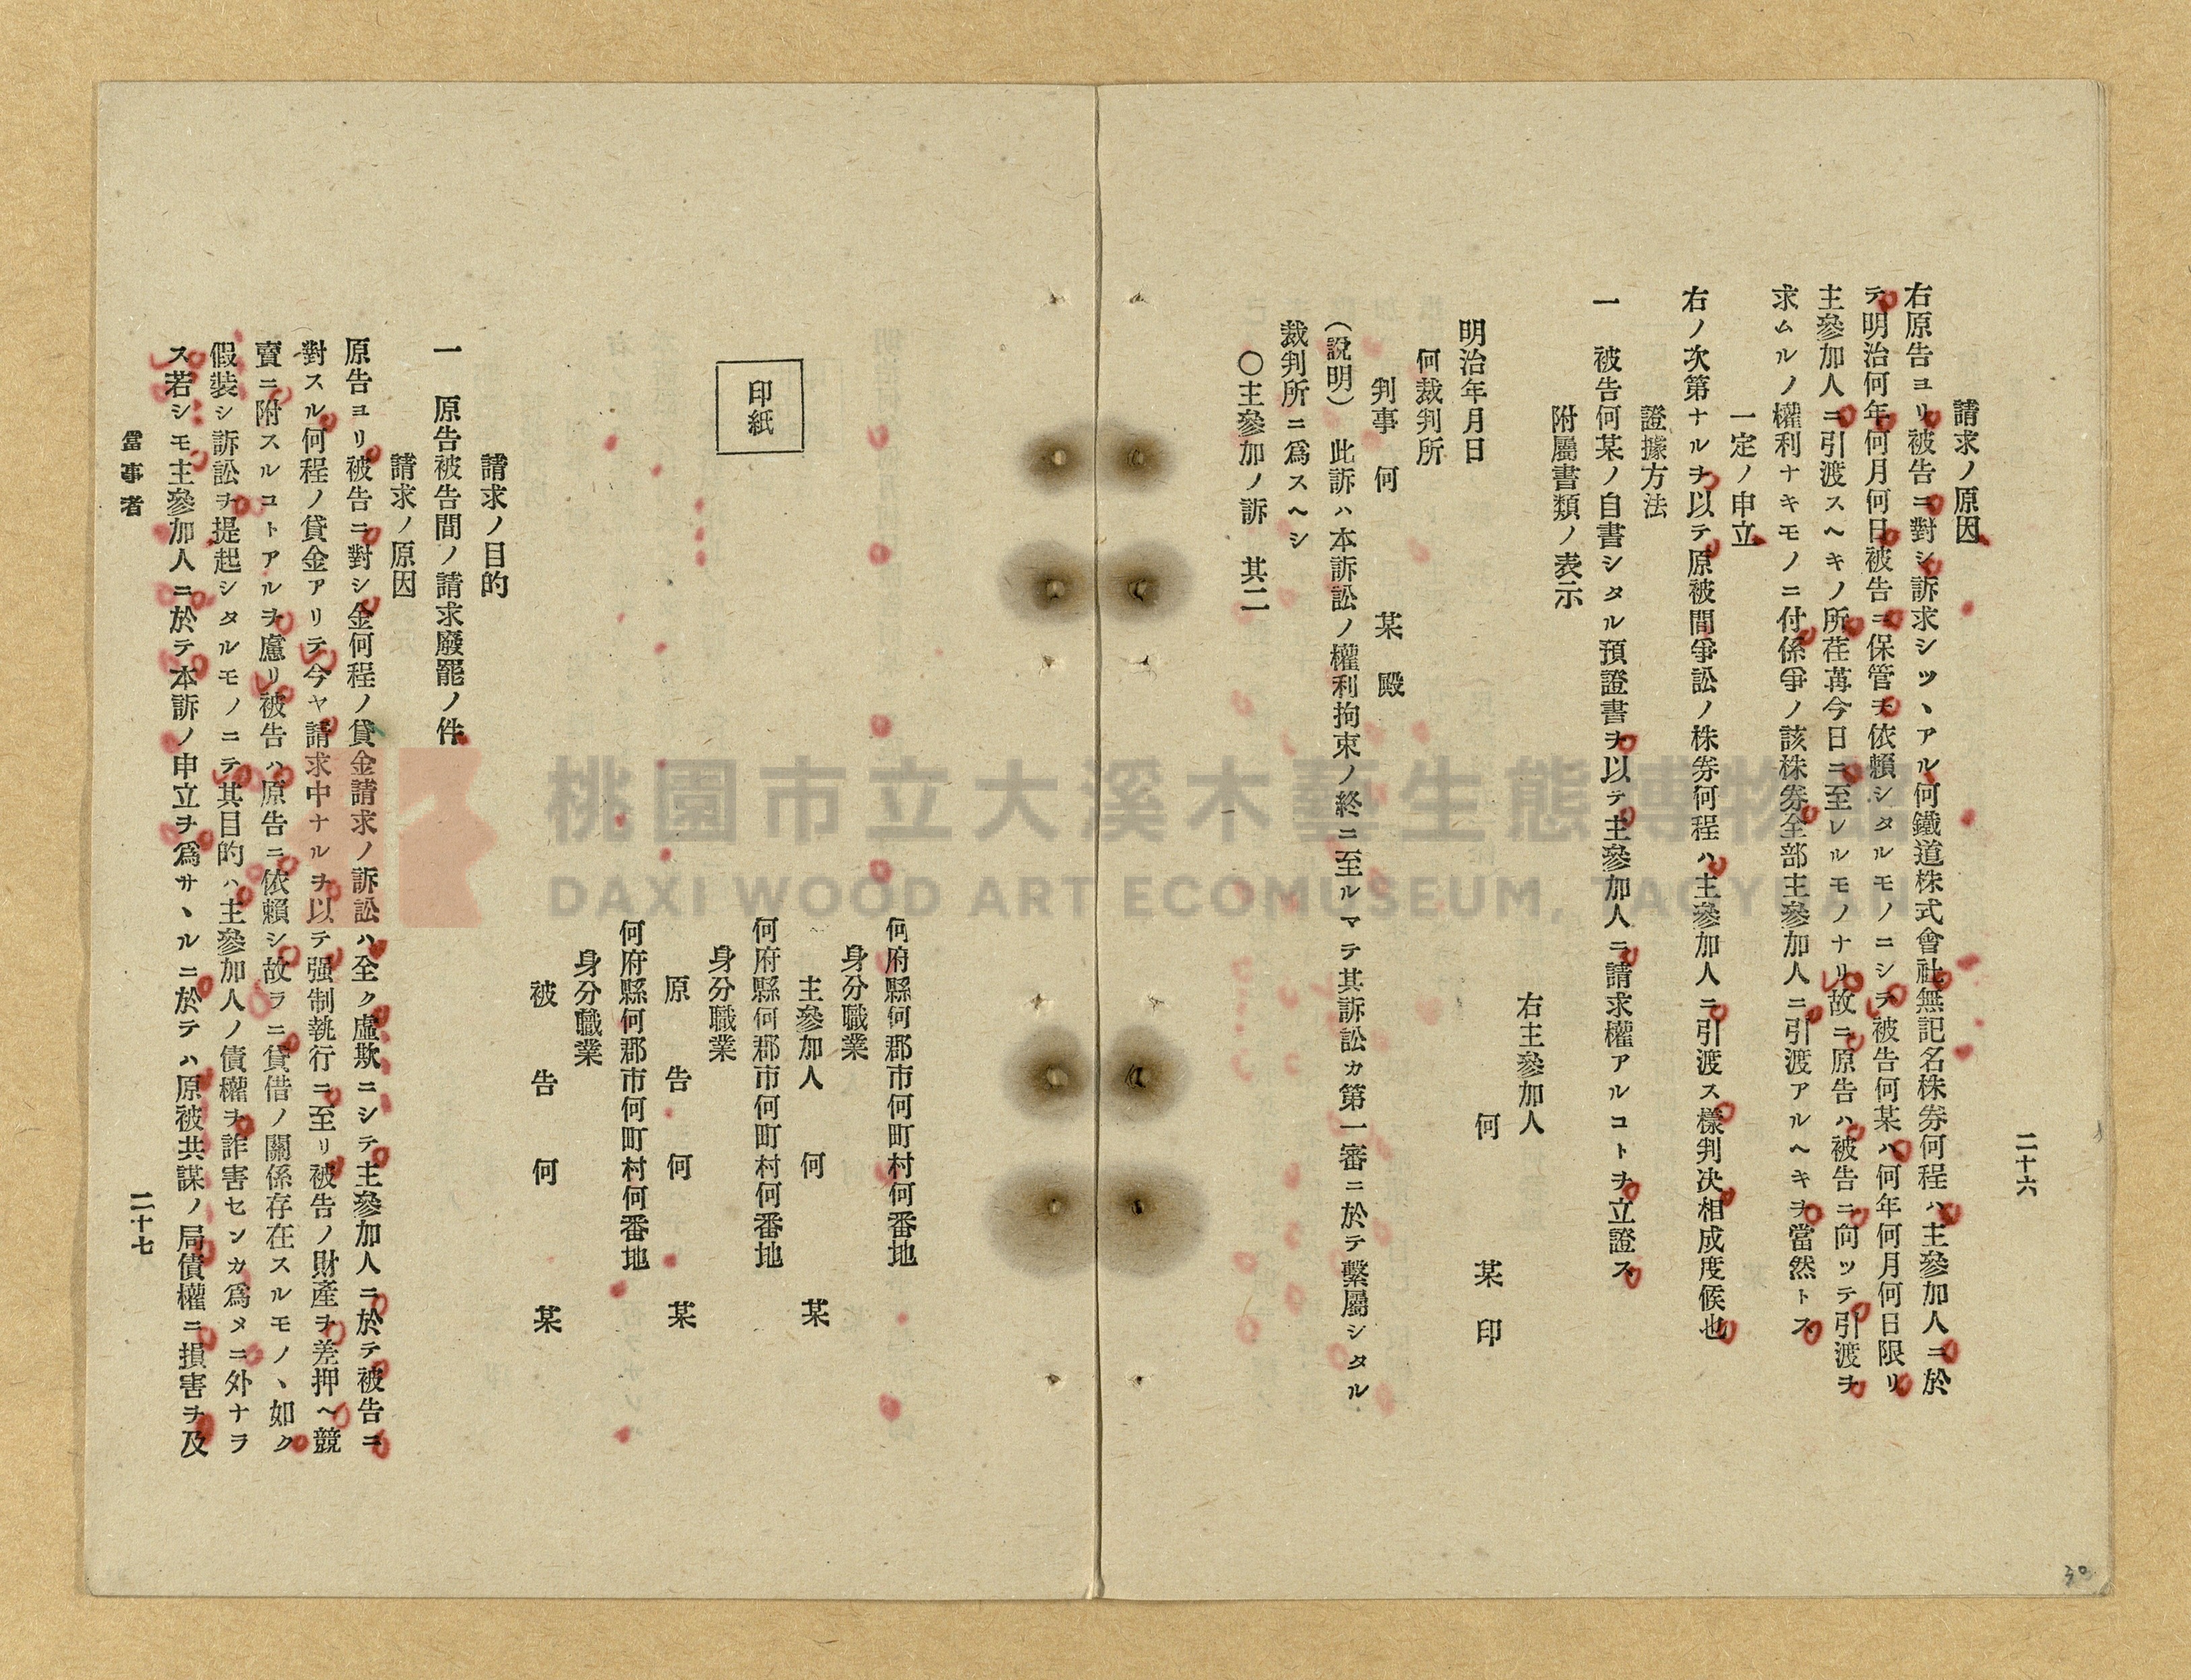 二十六
請求ノ原因
右原告ヨリ被告ニ對シ訴求シツヽアル何鐵道株式會社無記名株券何程ハ主參加人ニ於
テ明治何年何月何日被告ニ保管ヲ依賴シタルモノニシテ被告何某ハ何年何月何日限リ
主參加人ニ引渡スヘキノ所荏苒今日ニ至レルモノナリ故ニ原告ハ被告ニ向ツテ引渡ヲ
求ムルノ權利ナキモノニ付係爭ノ該株券全部主參加人ニ引渡アルヘキヲ當然トス
一定ノ申立
右ノ次第ナルヲ以テ原被間爭訟ノ株券何程ハ主參加人ニ引渡ス樣判決相成度候也
證據方法
一 被告何某ノ自書シタル預證書ヲ以テ主參加人ニ請求權アルコトヲ立證ス
附屬書類ノ表示
右主參加人
何 某 印
明治年月日
何裁判所
判事 何 某 殿
(說明) 此訴ハ本訴訟ノ權利拘束ノ終ニ至ルマテ其訴訟カ第一審ニ於テ繫屬シタル
裁判所ニ爲スヘシ
〇主參加ノ訴 其二
何府縣何郡市何町村何番地
身分職業
主參加人 何 某
印紙
何府縣何郡市何町村何番地
身分職業
原告 何 某
何府縣何郡市何町村何番地
身分職業
被告 何 某
請求ノ目的
一 原告被告間ノ請求廢罷ノ件
請求ノ原因
原告ヨリ被告ニ對シ金何程ノ貸金請求ノ訴訟ハ全ク虛欺ニシテ主參加人ニ於テ被告ニ
對スル何程ノ貸金アリテ今ヤ請求中ナルヲ以テ强制執行ニ至リ被告ノ財產ヲ差押ヘ競
賣ニ附スルコトアルヲ慮リ被告ハ原告ニ依賴シ故ラニ貸借ノ關係存在スルモノヽ如ク
假裝シ訴訟ヲ提起シタルモノニテ其目的ハ主參加人ノ債權ヲ詐害センカ爲メニ外ナラ
ス若シモ主參加人ニ於テ本訴ノ申立ヲ爲サヽルニ於テハ原被共謀ノ局債權ニ損害ヲ及
當事者
二十七
30
桃園市立大溪木藝生態博物館
DAXI WOOD ART ECOMUSEUM, TAOYUAN